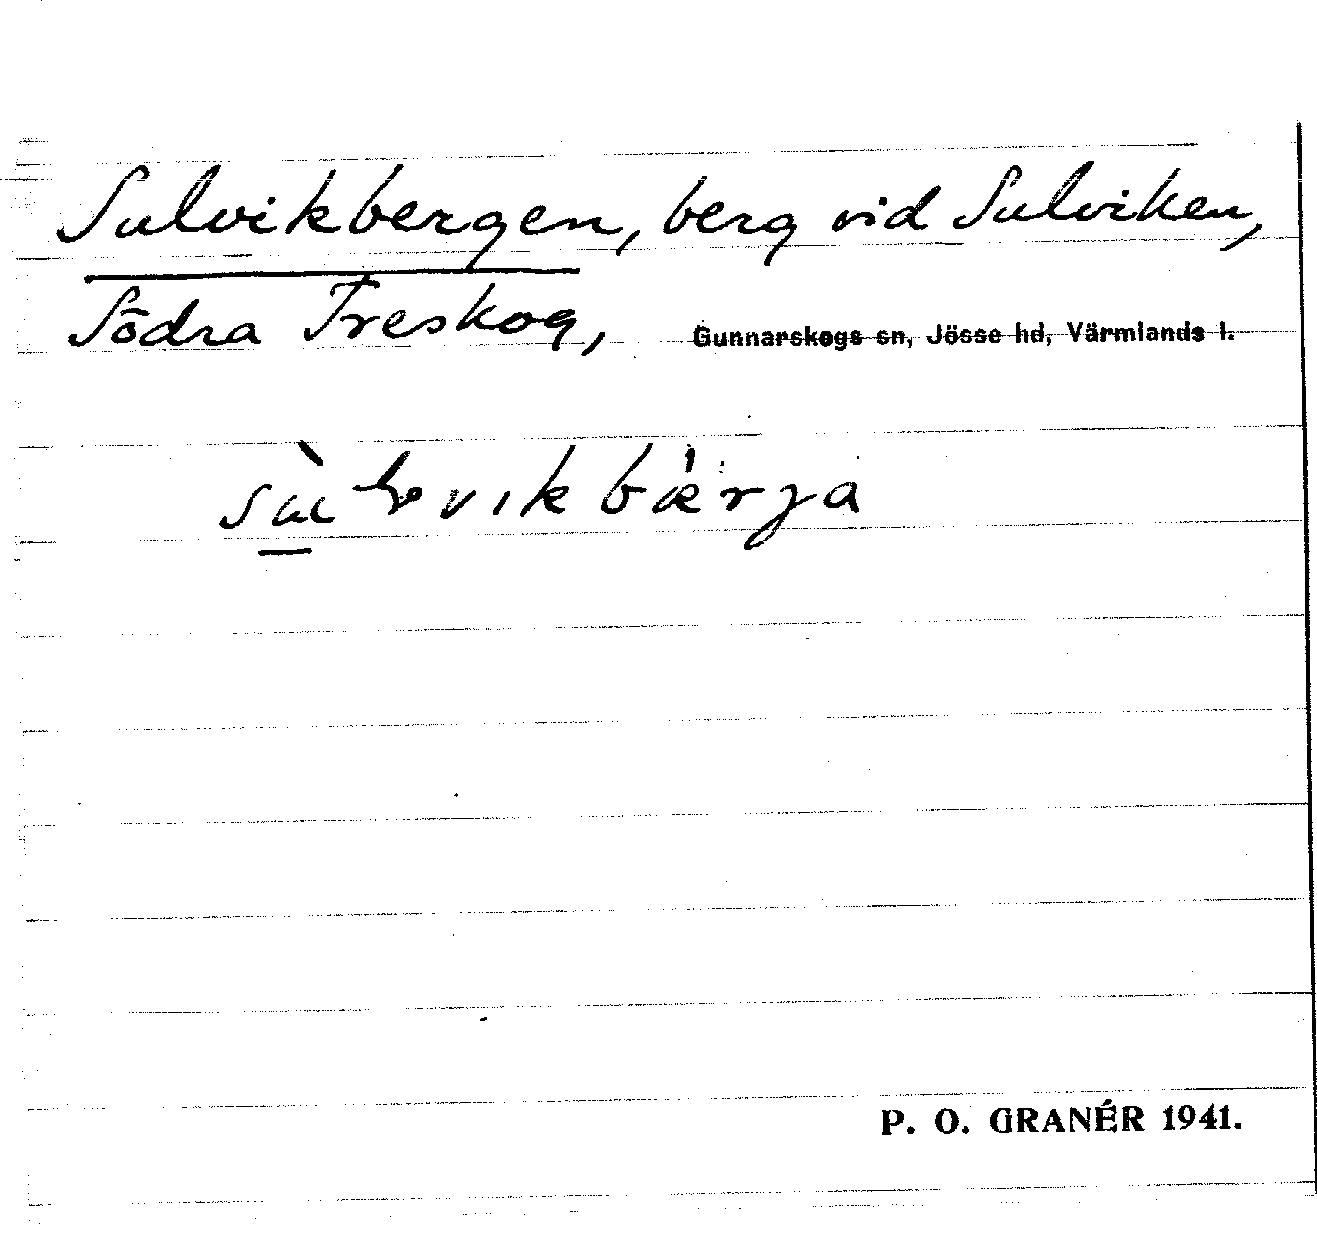 Sulvikbergen, berg vid Sulviken,
Södra Treskog, Gunnarskogs sn, Jösse hd, Värmlands l.
P. O. GRANÉR 1941.